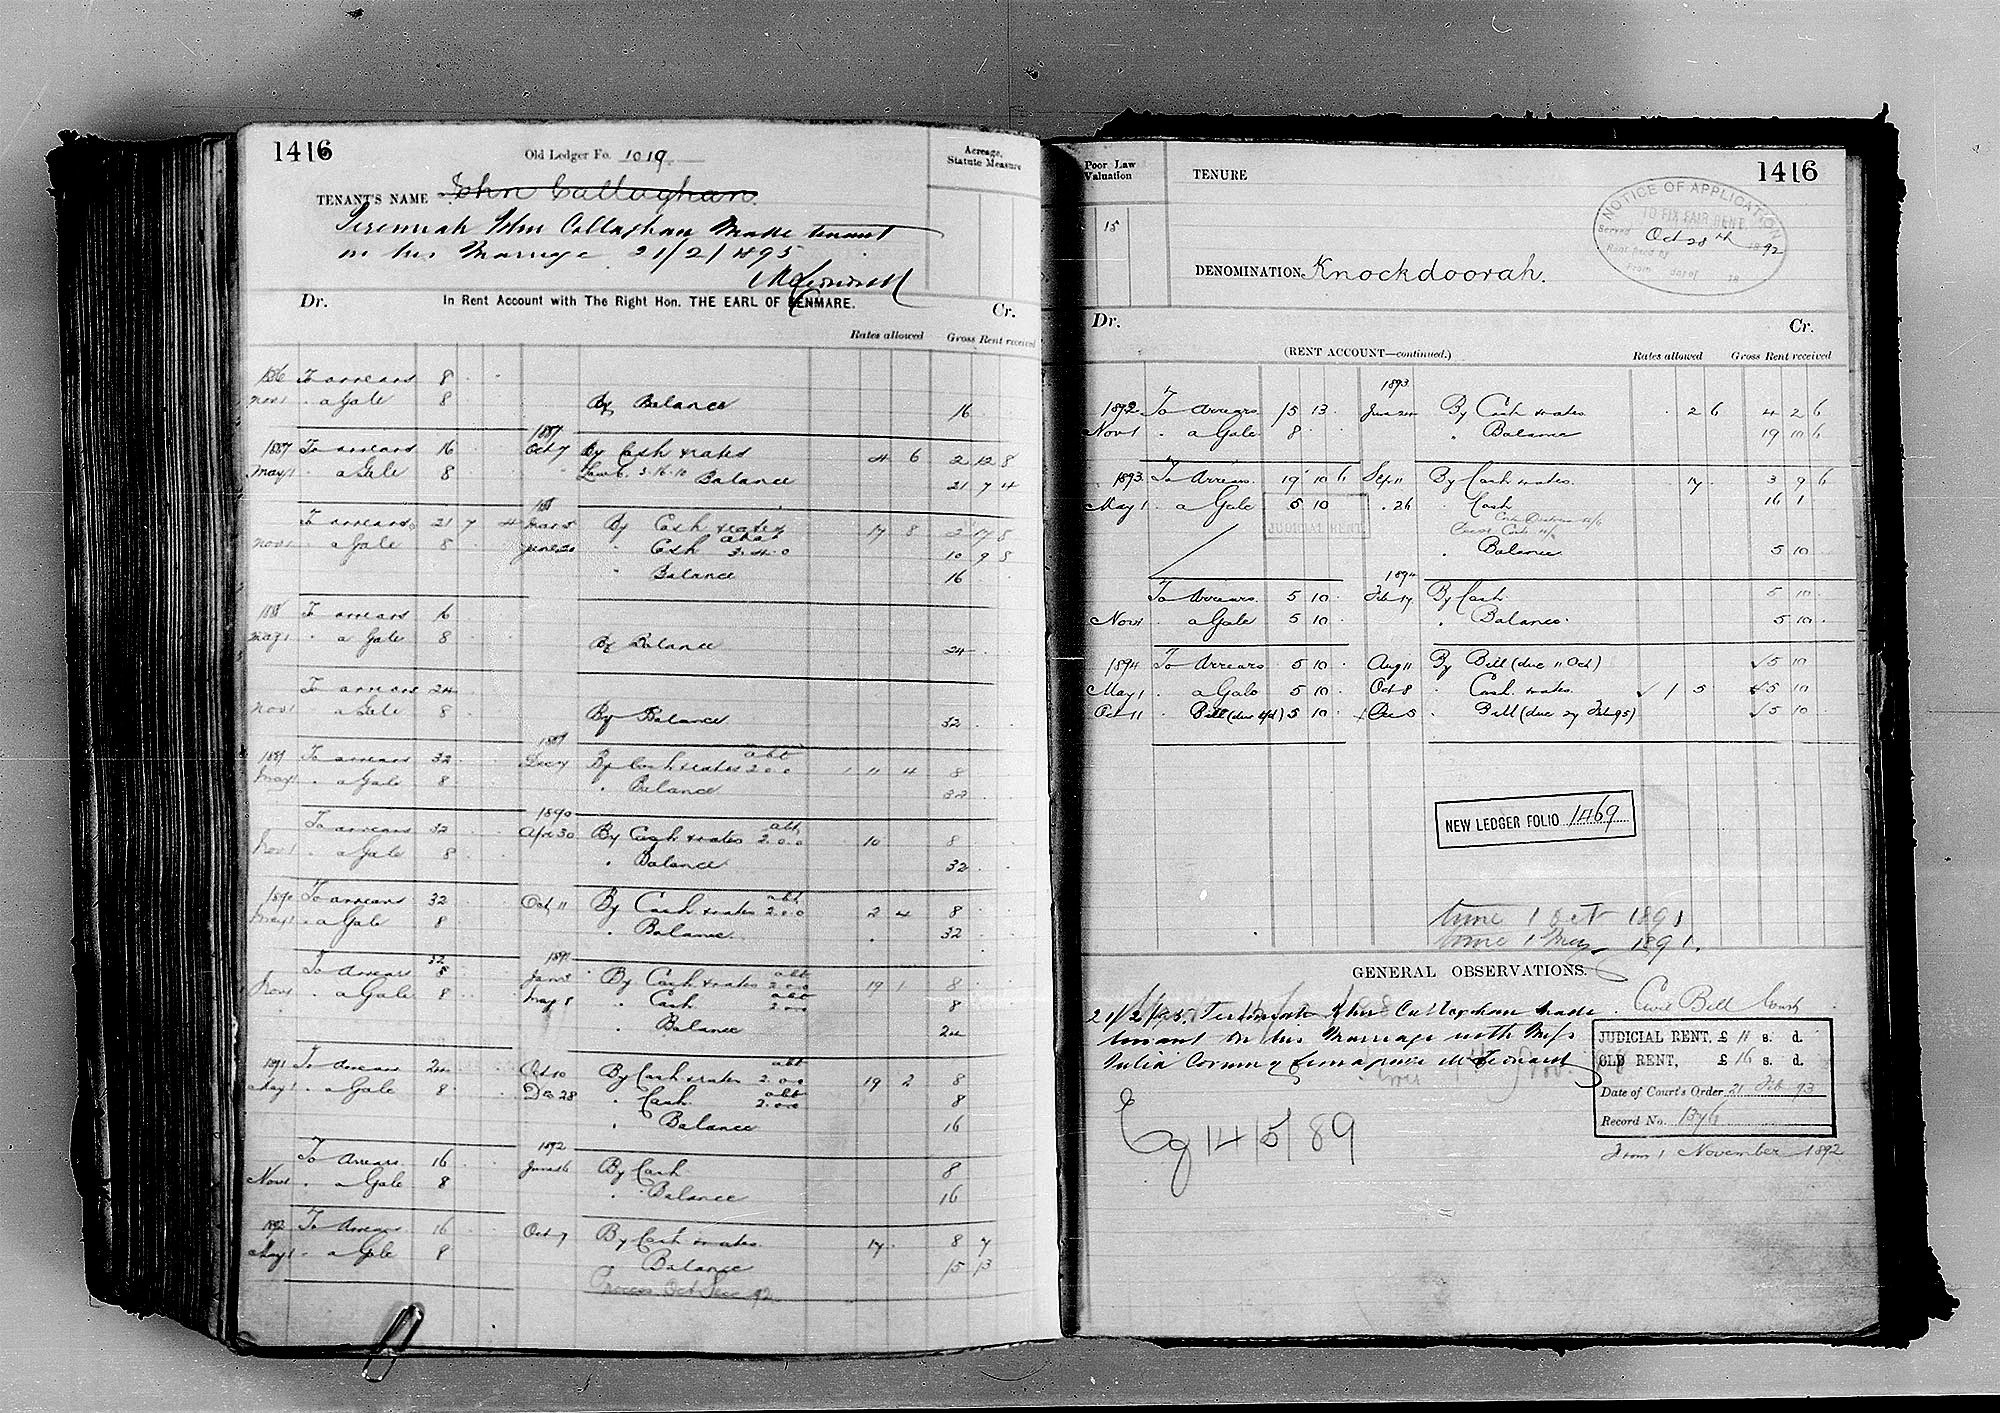 1416
Old Ledger Fo. 1019
Acreage, Statute Measure
TENANT'S NAME John Callaghan.
Jeremiah John Callaghan made tenant
on his Marriage 21/2/1895
Dr. In Rent Account with The Right Hon. THE EARL OF KENMARE. Cr.
Rates allowed Gross Rent received
1886 To arrears 8
Nov 1 " a Gale 8 By Balance 16
1887
1887 To arrears 16 Oct 7 By Cash & rates 4 6 2 12 8
May 1 " a Gale 8 3.16.10 Balance 21 7 4
188
To arrears 21 7 4 Mar 5 By Cash & rates 17 8 2 17 8
Nov 1 " a Gale 8 June 20 " Cash abat 3.4.0 10 9 8
" Balance 16
1888 To arrears 16
May 1 " a Gale 8 By Balance 24
To arrears 24
Nov 1 " a Gale 8 By Balance 32
1889
1889 To arrears 32 Dec 7 By Cash & rates abt 2.0.0 1 11 4 8
May 1 " a Gale 8 " Balance 32
1890
To arrears 32 Apr 30 By Cash & rates abt 2.0.0 10 8
Nov 1 " a Gale 8 " Balance 32
1890 To arrears 32 Oct 11 By Cash & rates abt 2.0.0 2 4 8
May 1 " a Gale 8 " Balance 32
1891
To Arrears 32 Jan 5 By Cash & rates abt 2.0.0 19 1 8
Nov 1 " a Gale 8 May 8 " Cash abt 2.0.0 8
" Balance 24
1891 To Arrears 24 Oct 10 By Cash & rates abt 2.0.0 19 2 8
May 1 " a Gale 8 Dec 28 " Cash abt 2.0.0 8
" Balance 16
1892
To Arrears 16 June 16 By Cash 8
Nov 1 " a Gale 8 " Balance 16
1892 To Arrears 16 Oct 7 By Cash & rates 17 8 7
May 1 " a Gale 8 Balance 15 13
Process Oct 92
Poor Law Valuation
TENURE
1416
15
NOTICE OF APPLICATION
TO FIX FAIR RENT
Served Oct 28th 1892
Rent paid by
From day of 18
DENOMINATION, Knockdoorah.
Dr. Cr.
(RENT ACCOUNT—continued.) Rates allowed Gross Rent received
1893
1892 To Arrears 15 13 June 24 By Cash & rates 2 6 4 2 6
Nov 1 " a Gale 8 " Balance 19 10 6
1893 To Arrears 19 10 6 Sep 11 By Cash & rates 17 3 9 6
May 1 " a Gale 5 10 " 26 " Cash 16 1
JUDICIAL RENT
" Balance 5 10
1894
To Arrears 5 10 Feb 17 By Cash 5 10
Nov 1 " a Gale 5 10 " Balance 5 10
1894 To Arrears 5 10 Aug 11 By Bill (due 11 Oct) 5 10
May 1 " a Gale 5 10 Oct 8 " Cash & rates 1 5 5 10
Oct 11 Bill 5 10 Dec 5 " Bill (due 27 Feb 95) 5 10
NEW LEDGER FOLIO 1469
time 1 Oct 1891
time 1 May 1891.
GENERAL OBSERVATIONS.
Civil Bill Court
21/2/95. Jeremiah John Callaghan made
tenant on his Marriage with Miss
Julia
JUDICIAL RENT, £ 11 s. d.
OLD RENT, £ 16 s. d.
Date of Court's Order 21 Feb 93
Record No. 1376
From 1 November 1892
Eg 14/5/89